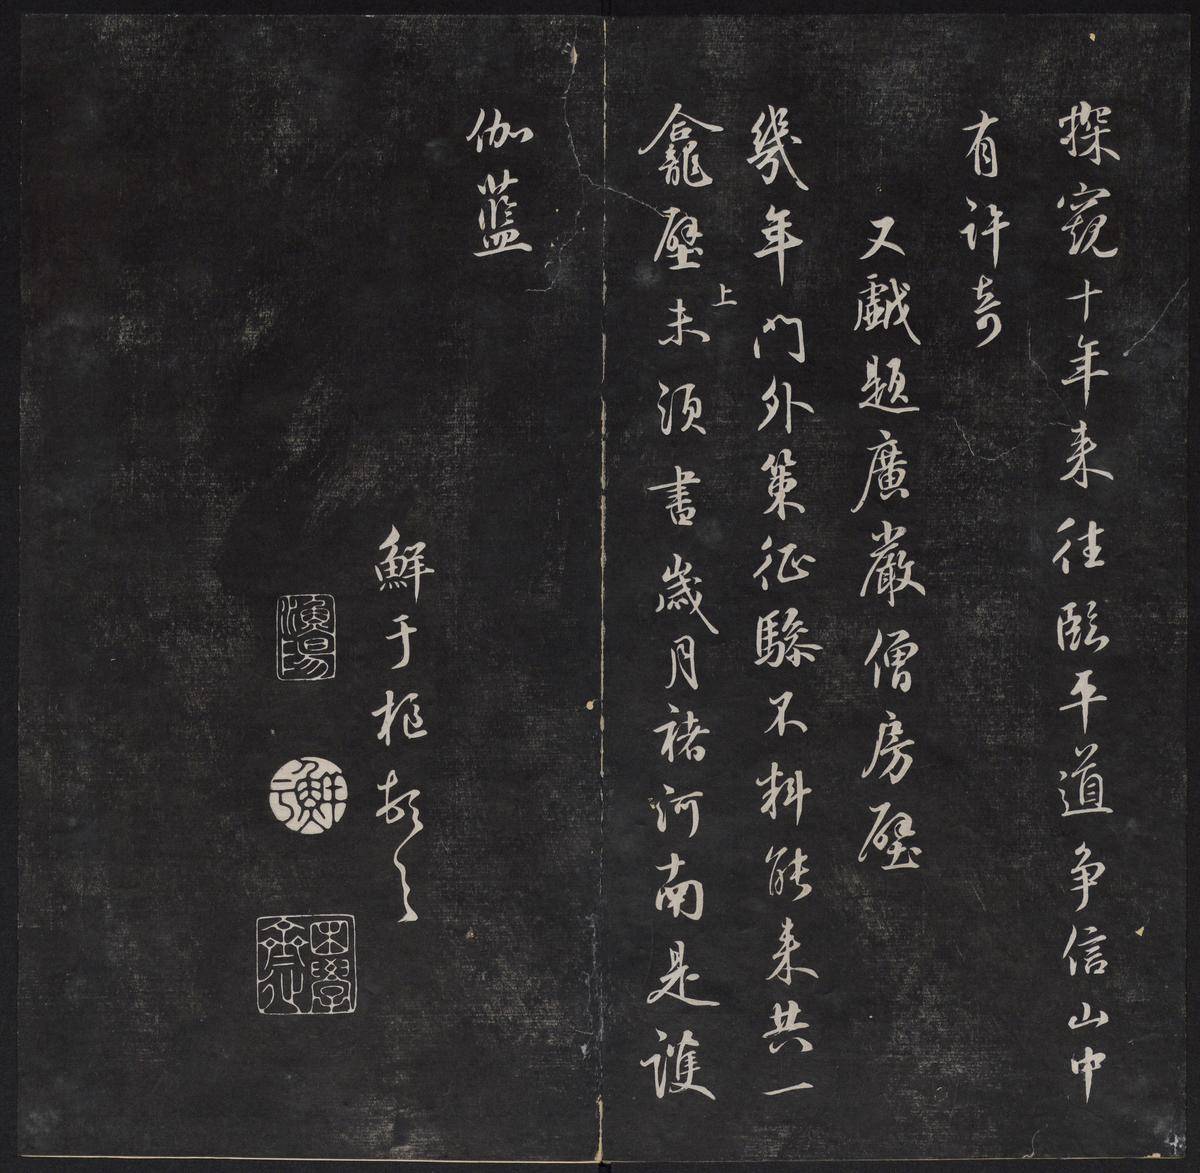 探窺十年来往臨平道争信山中
有許奇
又戲題廣嚴僧房壁
幾年門外策征驂不料能来共一
龕壁上未須書歲月褚河南是護
伽藍
鮮于樞頓首
漁陽
鮮
困學齋